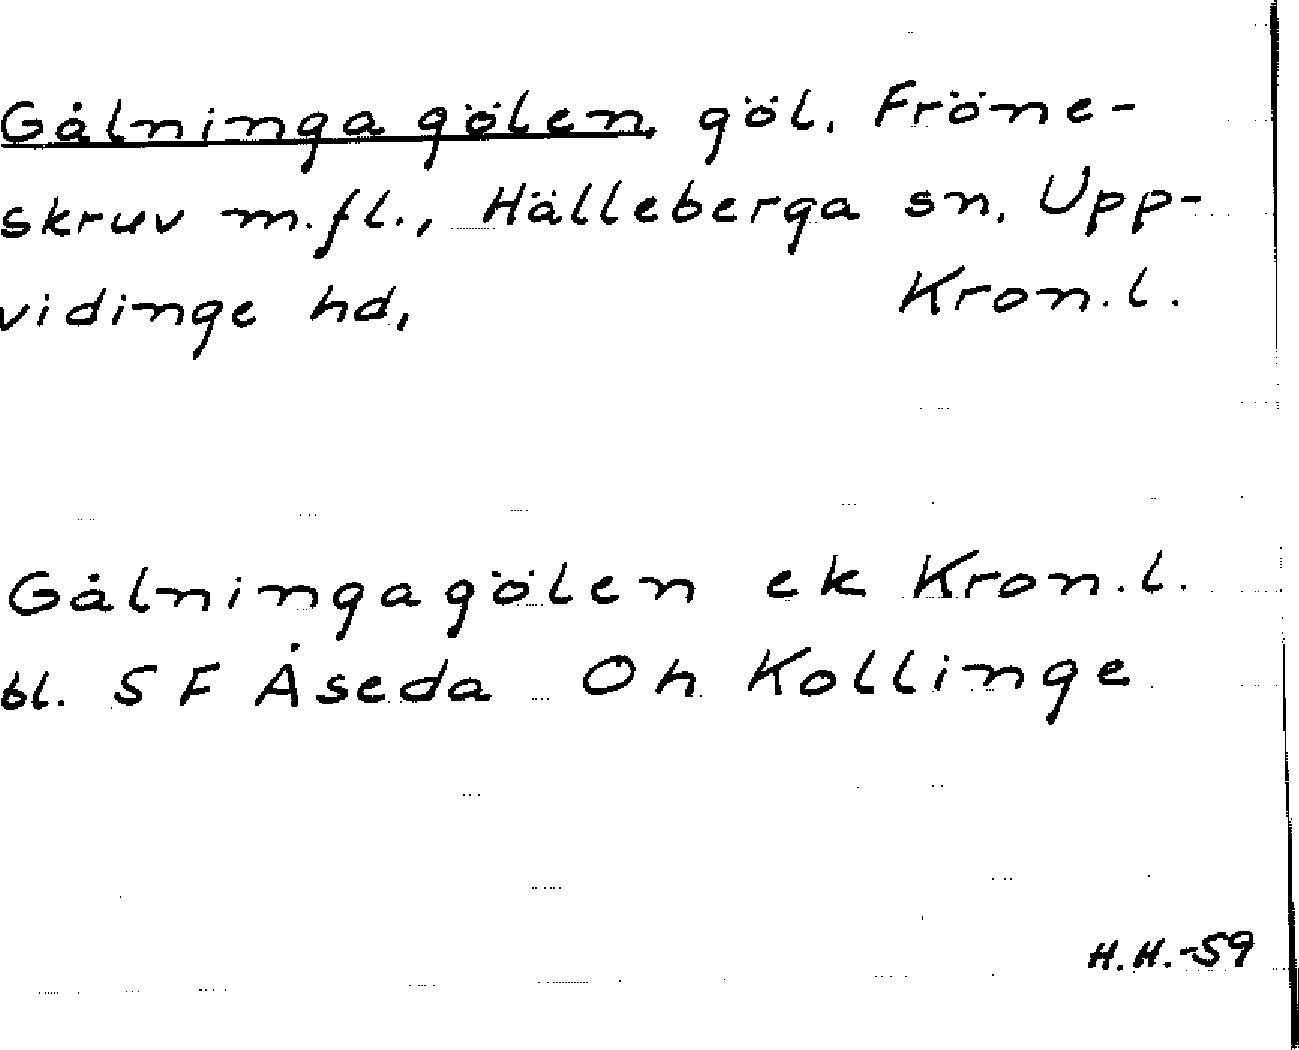 Gålninga gölen, göl, Fröne-
skruv m.fl., Hälleberga sn, Upp-
vidinge hd, Kron.l.
Gålningagölen ek Kron.l.
bl. S F Åseda Oh Kollinge
H.H.-59